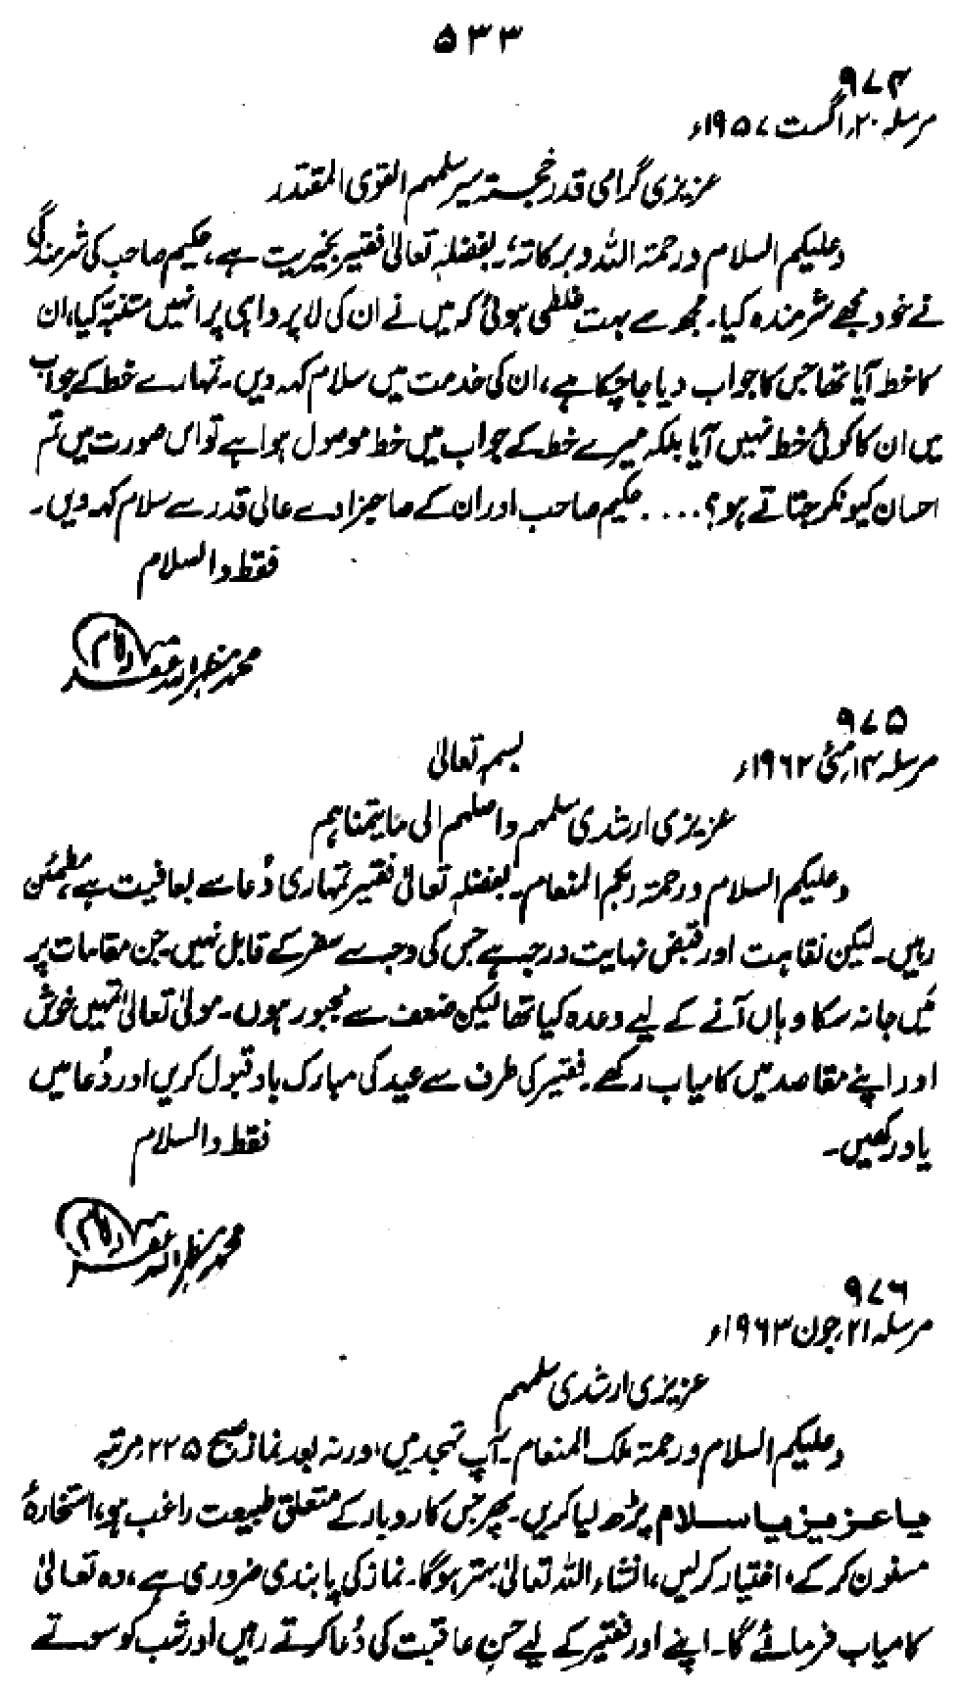 ۵۳۳
۹۷۴
مرسلہ ۲۰؍اگست ۱۹۵۷ء
عزیزی گرامی قدر خجستہ سیر سلمہم القوی المقتدر
وعلیکم السلام ورحمۃ اللہ وبرکاتہٗ، بفضلہٖ تعالیٰ فقیر بخیریت ہے، حکیم صاحب کی شرمندگی
نے خود مجھے شرمندہ کیا۔ مجھ سے بہت غلطی ہوئی کہ میں نے ان کی لاپرواہی پر انہیں متنبہ کیا، ان
کا خط آیا تھا جس کا جواب دیا جا چکا ہے، ان کی خدمت میں سلام کہہ دیں۔ تمہارے خط کے جواب
میں ان کا کوئی خط نہیں آیا بلکہ میرے خط کے جواب میں خط موصول ہوا ہے تو اس صورت میں تم
احسان کیونکر جتاتے ہو؟.... حکیم صاحب اور ان کے صاحبزادے عالی قدر سے سلام کہہ دیں۔
فقط والسلام
محمد مظہر اللہ
۹۷۵
مرسلہ ۱۴؍مئی ۱۹۶۲ء
بسمہٖ تعالیٰ
عزیزی ارشدی سلمہم واصلہم الی مایتمناہم
وعلیکم السلام ورحمۃ ربکم المنعام۔ بفضلہٖ تعالیٰ فقیر تمہاری دُعا سے بعافیت ہے، مطمئن
رہیں۔ لیکن نقاہت اور قبض نہایت درجہ ہے جس کی وجہ سے سفر کے قابل نہیں۔ جن مقامات پر
میں جا نہ سکا وہاں آنے کے لیے وعدہ کیا تھا لیکن ضعف سے مجبور ہوں۔ مولیٰ تعالیٰ تمہیں خوش
اور اپنے مقاصد میں کامیاب رکھے۔ فقیر کی طرف سے عید کی مبارک باد قبول کریں اور دُعا میں
یاد رکھیں۔
فقط والسلام
محمد مظہر اللہ
۹۷۶
مرسلہ ۲۱؍جون ۱۹۶۳ء
عزیزی ارشدی سلمہم
وعلیکم السلام ورحمۃ ملک المنعام۔ آپ تہجد میں، ورنہ بعد نماز صبح ۲۲۵ مرتبہ
یا عزیز یا سلام پڑھ لیا کریں۔ پھر جس کاروبار کے متعلق طبیعت راغب ہو، استخارۂ
مسنون کر کے، اختیار کر لیں، انشاء اللہ تعالیٰ بہتر ہوگا۔ نماز کی پابندی ضروری ہے، وہ تعالیٰ
کامیاب فرمائے گا۔ اپنے اور فقیر کے لیے حسنِ عاقبت کی دُعا کرتے رہیں اور شب کو سوتے